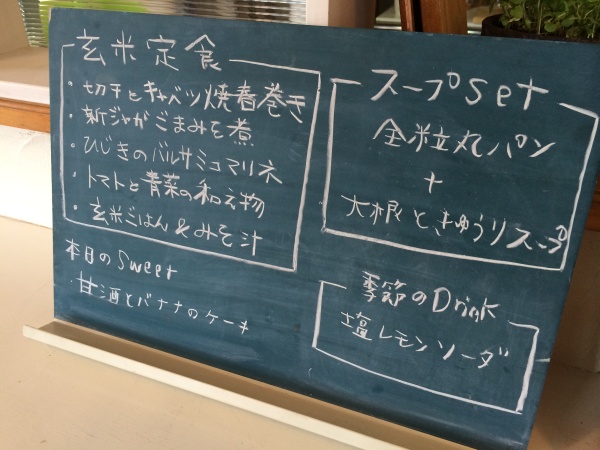 玄米定食
・切干とキャベツ焼春巻き
・新ジャがごまみそ煮
・ひじきのバルサミコマリネ
・トマトと青菜の和え物
・玄米ごはん&みそ汁
本日のSweet
甘酒とバナナのケーキ
スープset
全粒丸パン
+
大根ときゅうりスープ
季節のDrink
塩レモンソーダ